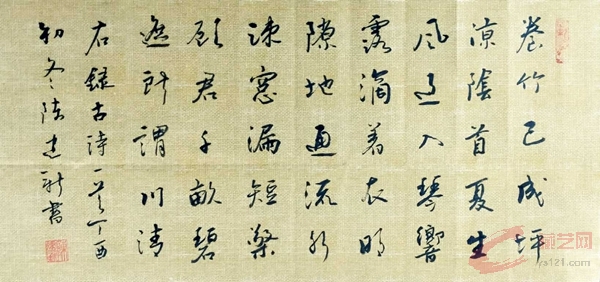 竹已成坪
凉陰首夏生
風过入琴響
露滴着衣明
隙地通流水
疎窓漏短檠
願君千畝碧
遮謂川清
右録古诗一首丁酉
初冬陈志新書
艺网
ys121.com